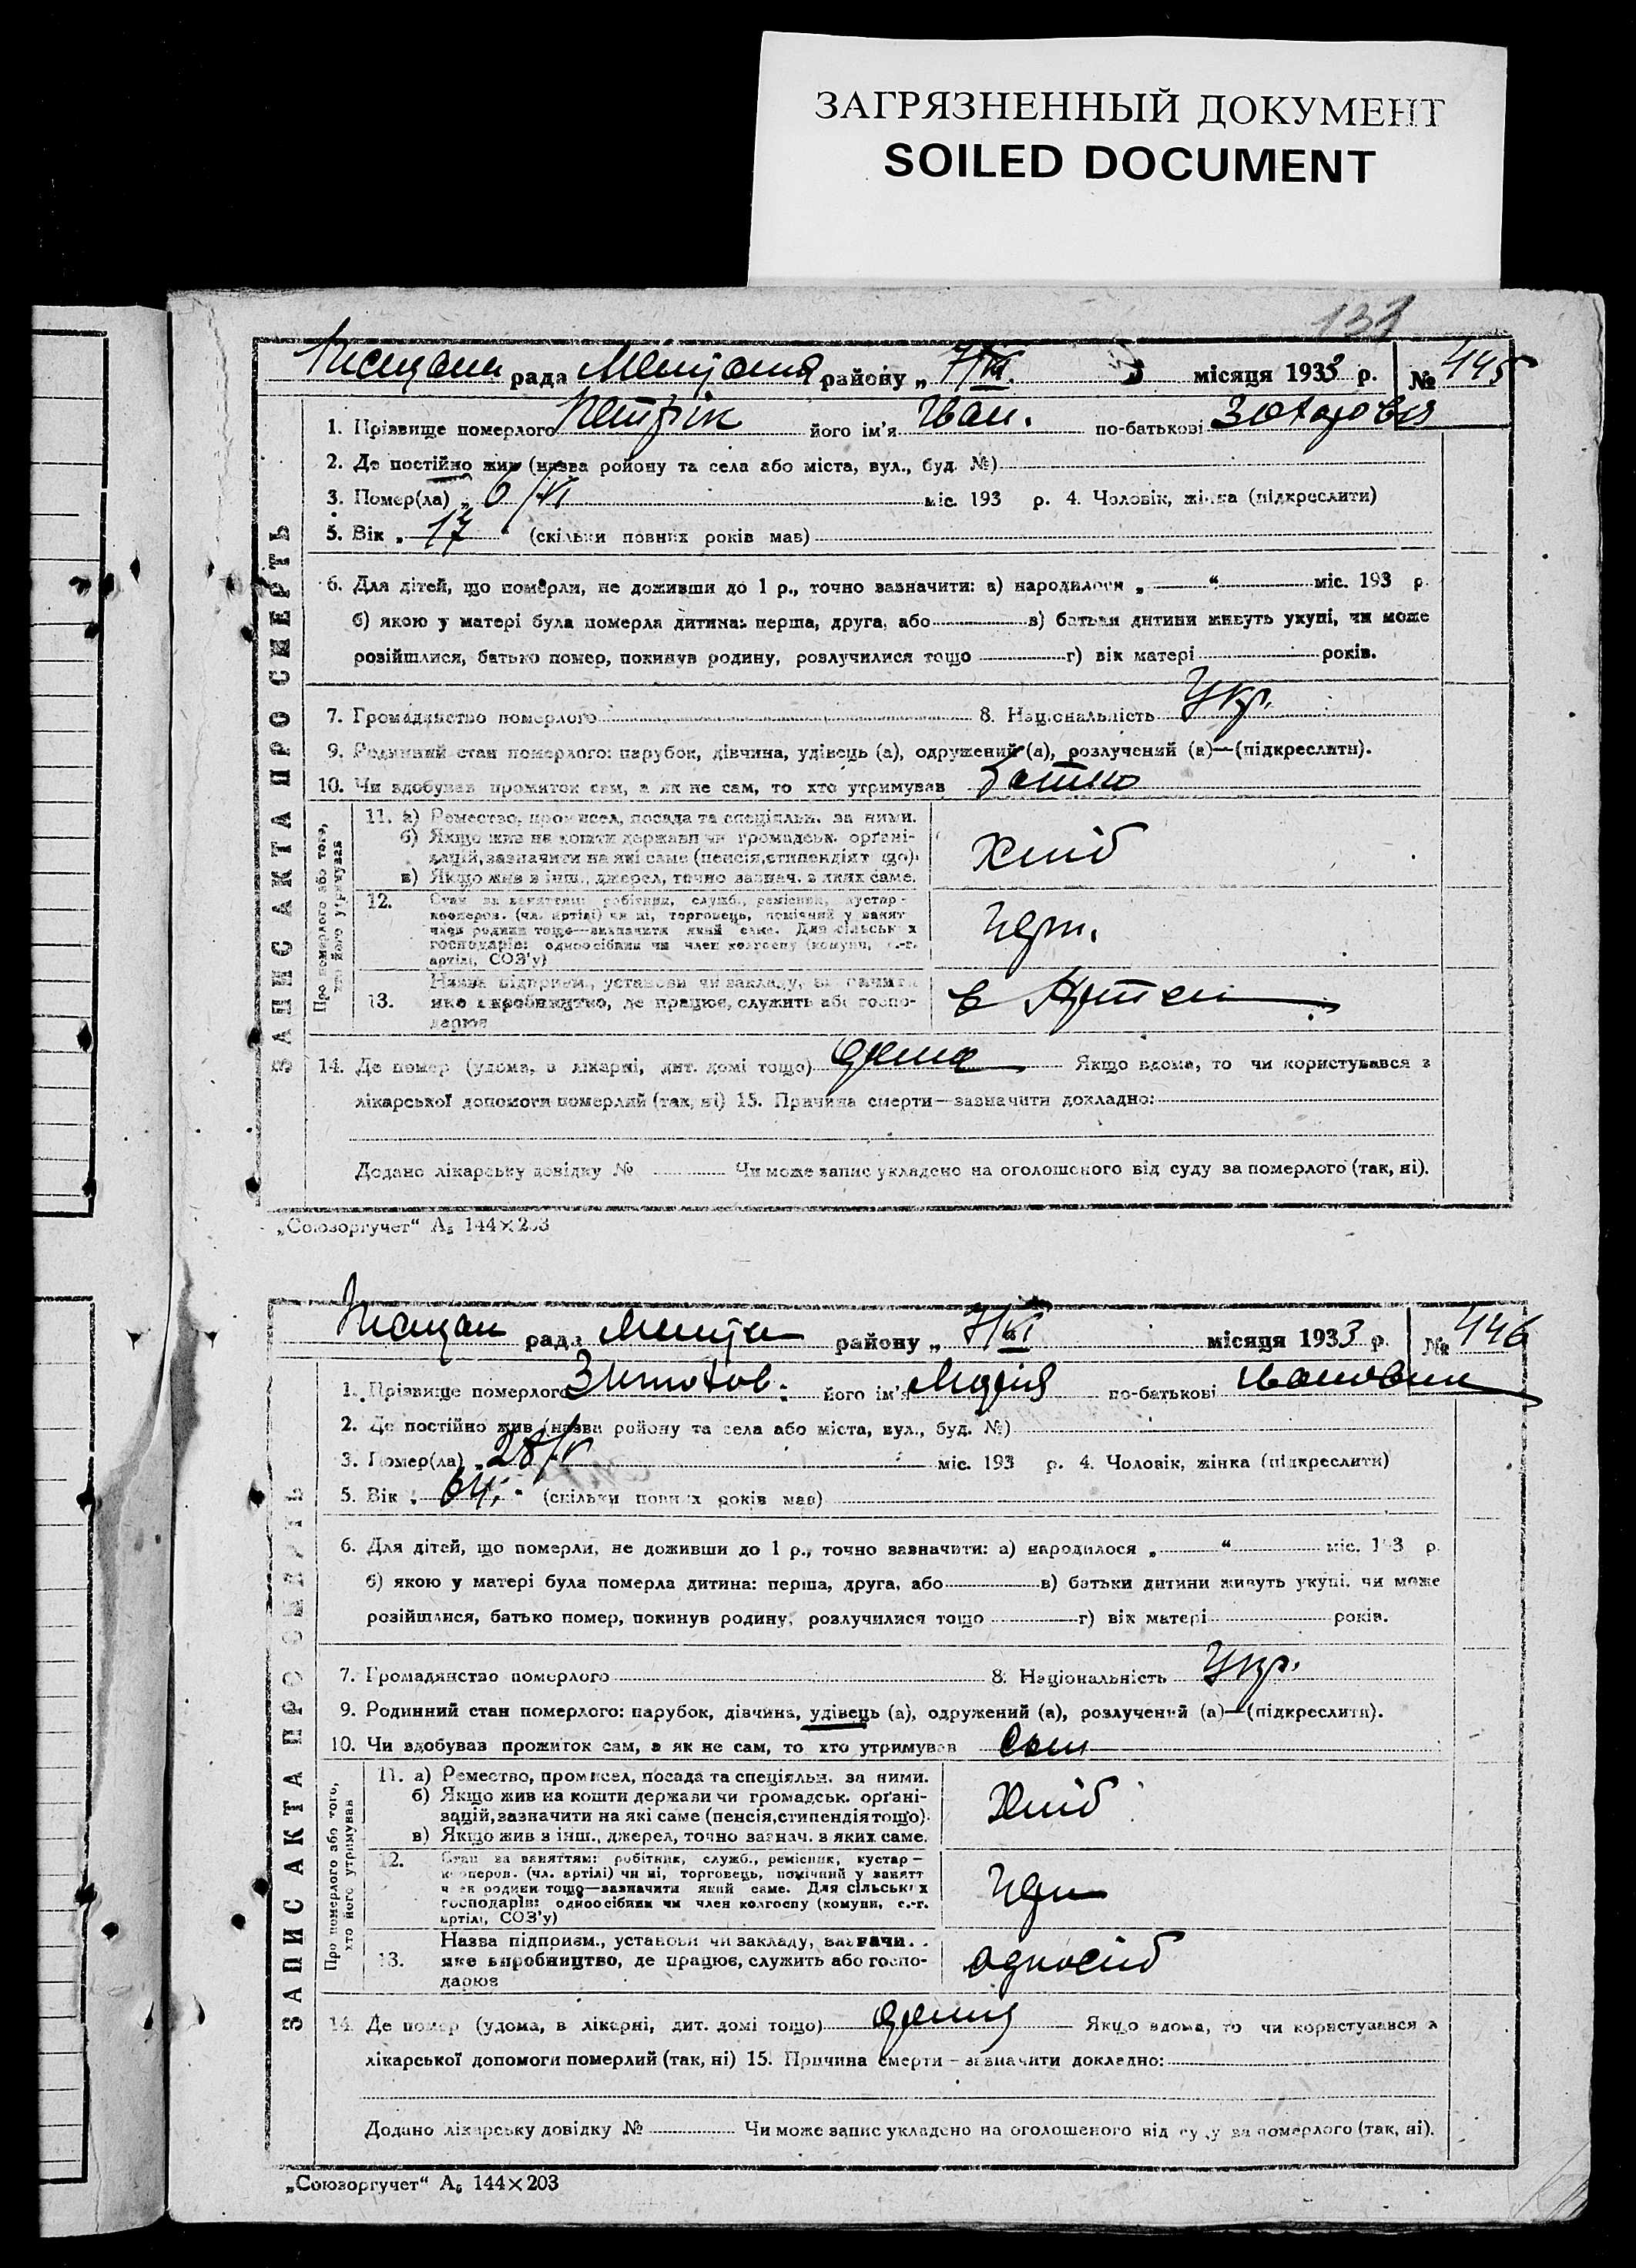 ЗАГРЯЗНЕННЫЙ ДОКУМЕНТ
SOILED DOCUMENT
рада району „ 7/VI. місяця 1933 р. № 445
1. Прізвище померлого його ім'я Іван. по-батькові
2. Де постійно жив (назва ройону та села або міста, вул., буд. №)
3. Помер(ла) „ 6/VI міс. 193 р. 4. Чоловік, жінка (підкреслити)
5. Вік „ 17 “ (скільки повних років мав)
6. Для дітей, що померли, не доживши до 1 р., точно зазначити: а) народилося „ “ міс. 193 р.
б) якою у матері була померла дитина: перша, друга, або в) батьки дитини живуть укупі, чи може
розійшлися, батько помер, покинув родину, розлучилися тощо г) вік матері років.
7. Громадянство померлого 8. Національність Укр.
9. Родинний стан померлого: парубок, дівчина, удівець (а), одружений (а), розлучений (а)—(підкреслити).
10. Чи здобував прожиток сам, а як не сам, то хто утримував батько
ЗАПИС АКТА ПРО СМЕРТЬ
Про померлого або того,
хто його утримував
11. а) Ремество, промисел, посада та спеціяльн. за ними.
б) Якщо жив на кошти держави чи громадськ. орґані-
зацій, зазначити на які саме (пенсія, стипендія тощо).
в) Якщо жив з інш., джерел, точно зазнач. з яких саме.
Хліб
12. Стан за заняттям: робітник, служб., ремісник, кустар-
кооперов. (чл. артілі) чи ні, торговець, помічний у занятт
член родини тощо—зазначити який саме. Для сільських
господарів: одноосібник чи член колгоспу (комуни, с.-г.
артілі, СОЗ'у)
13. Назва підприєм., установи чи закладу, зазначити
яке виробництво, де працює, служить або госпо-
дарює
в Артілі
14. Де помер (удома, в лікарні, дит. домі тощо) дома Якщо вдома, то чи користувався з
лікарської допомоги померлий (так, ні) 15. Причина смерти—зазначити докладно:
Додано лікарську довідку № Чи може запис укладено на оголошеного від суду за померлого (так, ні).
„Союзоргучет“ А₅ 144×203
рада району „ 7/VI місяця 1933 р. № 446
1. Прізвище померлого його ім'я по-батькові
2. Де постійно жив (назва ройону та села або міста, вул., буд. №)
3. Помер(ла) „ 28/V міс. 193 р. 4. Чоловік, жінка (підкреслити)
5. Вік „ 64. “ (скільки повних років мав)
6. Для дітей, що померли, не доживши до 1 р., точно зазначити: а) народилося „ “ міс. 193 р.
б) якою у матері була померла дитина: перша, друга, або в) батьки дитини живуть укупі, чи може
розійшлися, батько помер, покинув родину, розлучилися тощо г) вік матері років.
7. Громадянство померлого 8. Національність Укр.
9. Родинний стан померлого: парубок, дівчина, удівець (а), одружений (а), розлучений (а)—(підкреслити).
10. Чи здобував прожиток сам, а як не сам, то хто утримував
ЗАПИС АКТА ПРО СМЕРТЬ
Про померлого або того,
хто його утримував
11. а) Ремество, промисел, посада та спеціяльн. за ними.
б) Якщо жив на кошти держави чи громадськ. орґані-
зацій, зазначити на які саме (пенсія, стипендія тощо).
в) Якщо жив з інш., джерел, точно зазнач. з яких саме.
Хліб
12. Стан за заняттям: робітник, служб., ремісник, кустар-
кооперов. (чл. артілі) чи ні, торговець, помічний у занятт
член родини тощо—зазначити який саме. Для сільських
господарів: одноосібник чи член колгоспу (комуни, с.-г.
артілі, СОЗ'у)
13. Назва підприєм., установи чи закладу, зазначи
яке виробництво, де працює, служить або госпо-
дарює
одноосіб
14. Де помер (удома, в лікарні, дит. домі тощо) дома Якщо вдома, то чи користувався з
лікарської допомоги померлий (так, ні) 15. Причина смерти—зазначити докладно:
Додано лікарську довідку № Чи може запис укладено на оголошеного від суду за померлого (так, ні).
„Союзоргучет“ А₅ 144×203